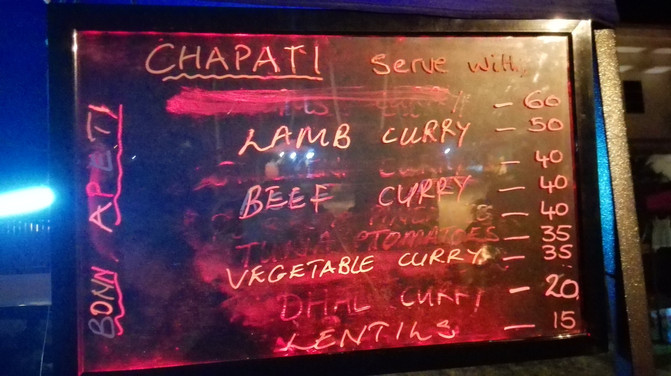 CHAPATI Serve With
CURRY - 60
LAMB CURRY - 50
CURRY - 40
BEEF CURRY - 40
- 40
TUNA TOMATOES - 35
VEGETABLE CURRY - 35
DHAL CURRY - 20
LENTILS - 15
BONN APETI